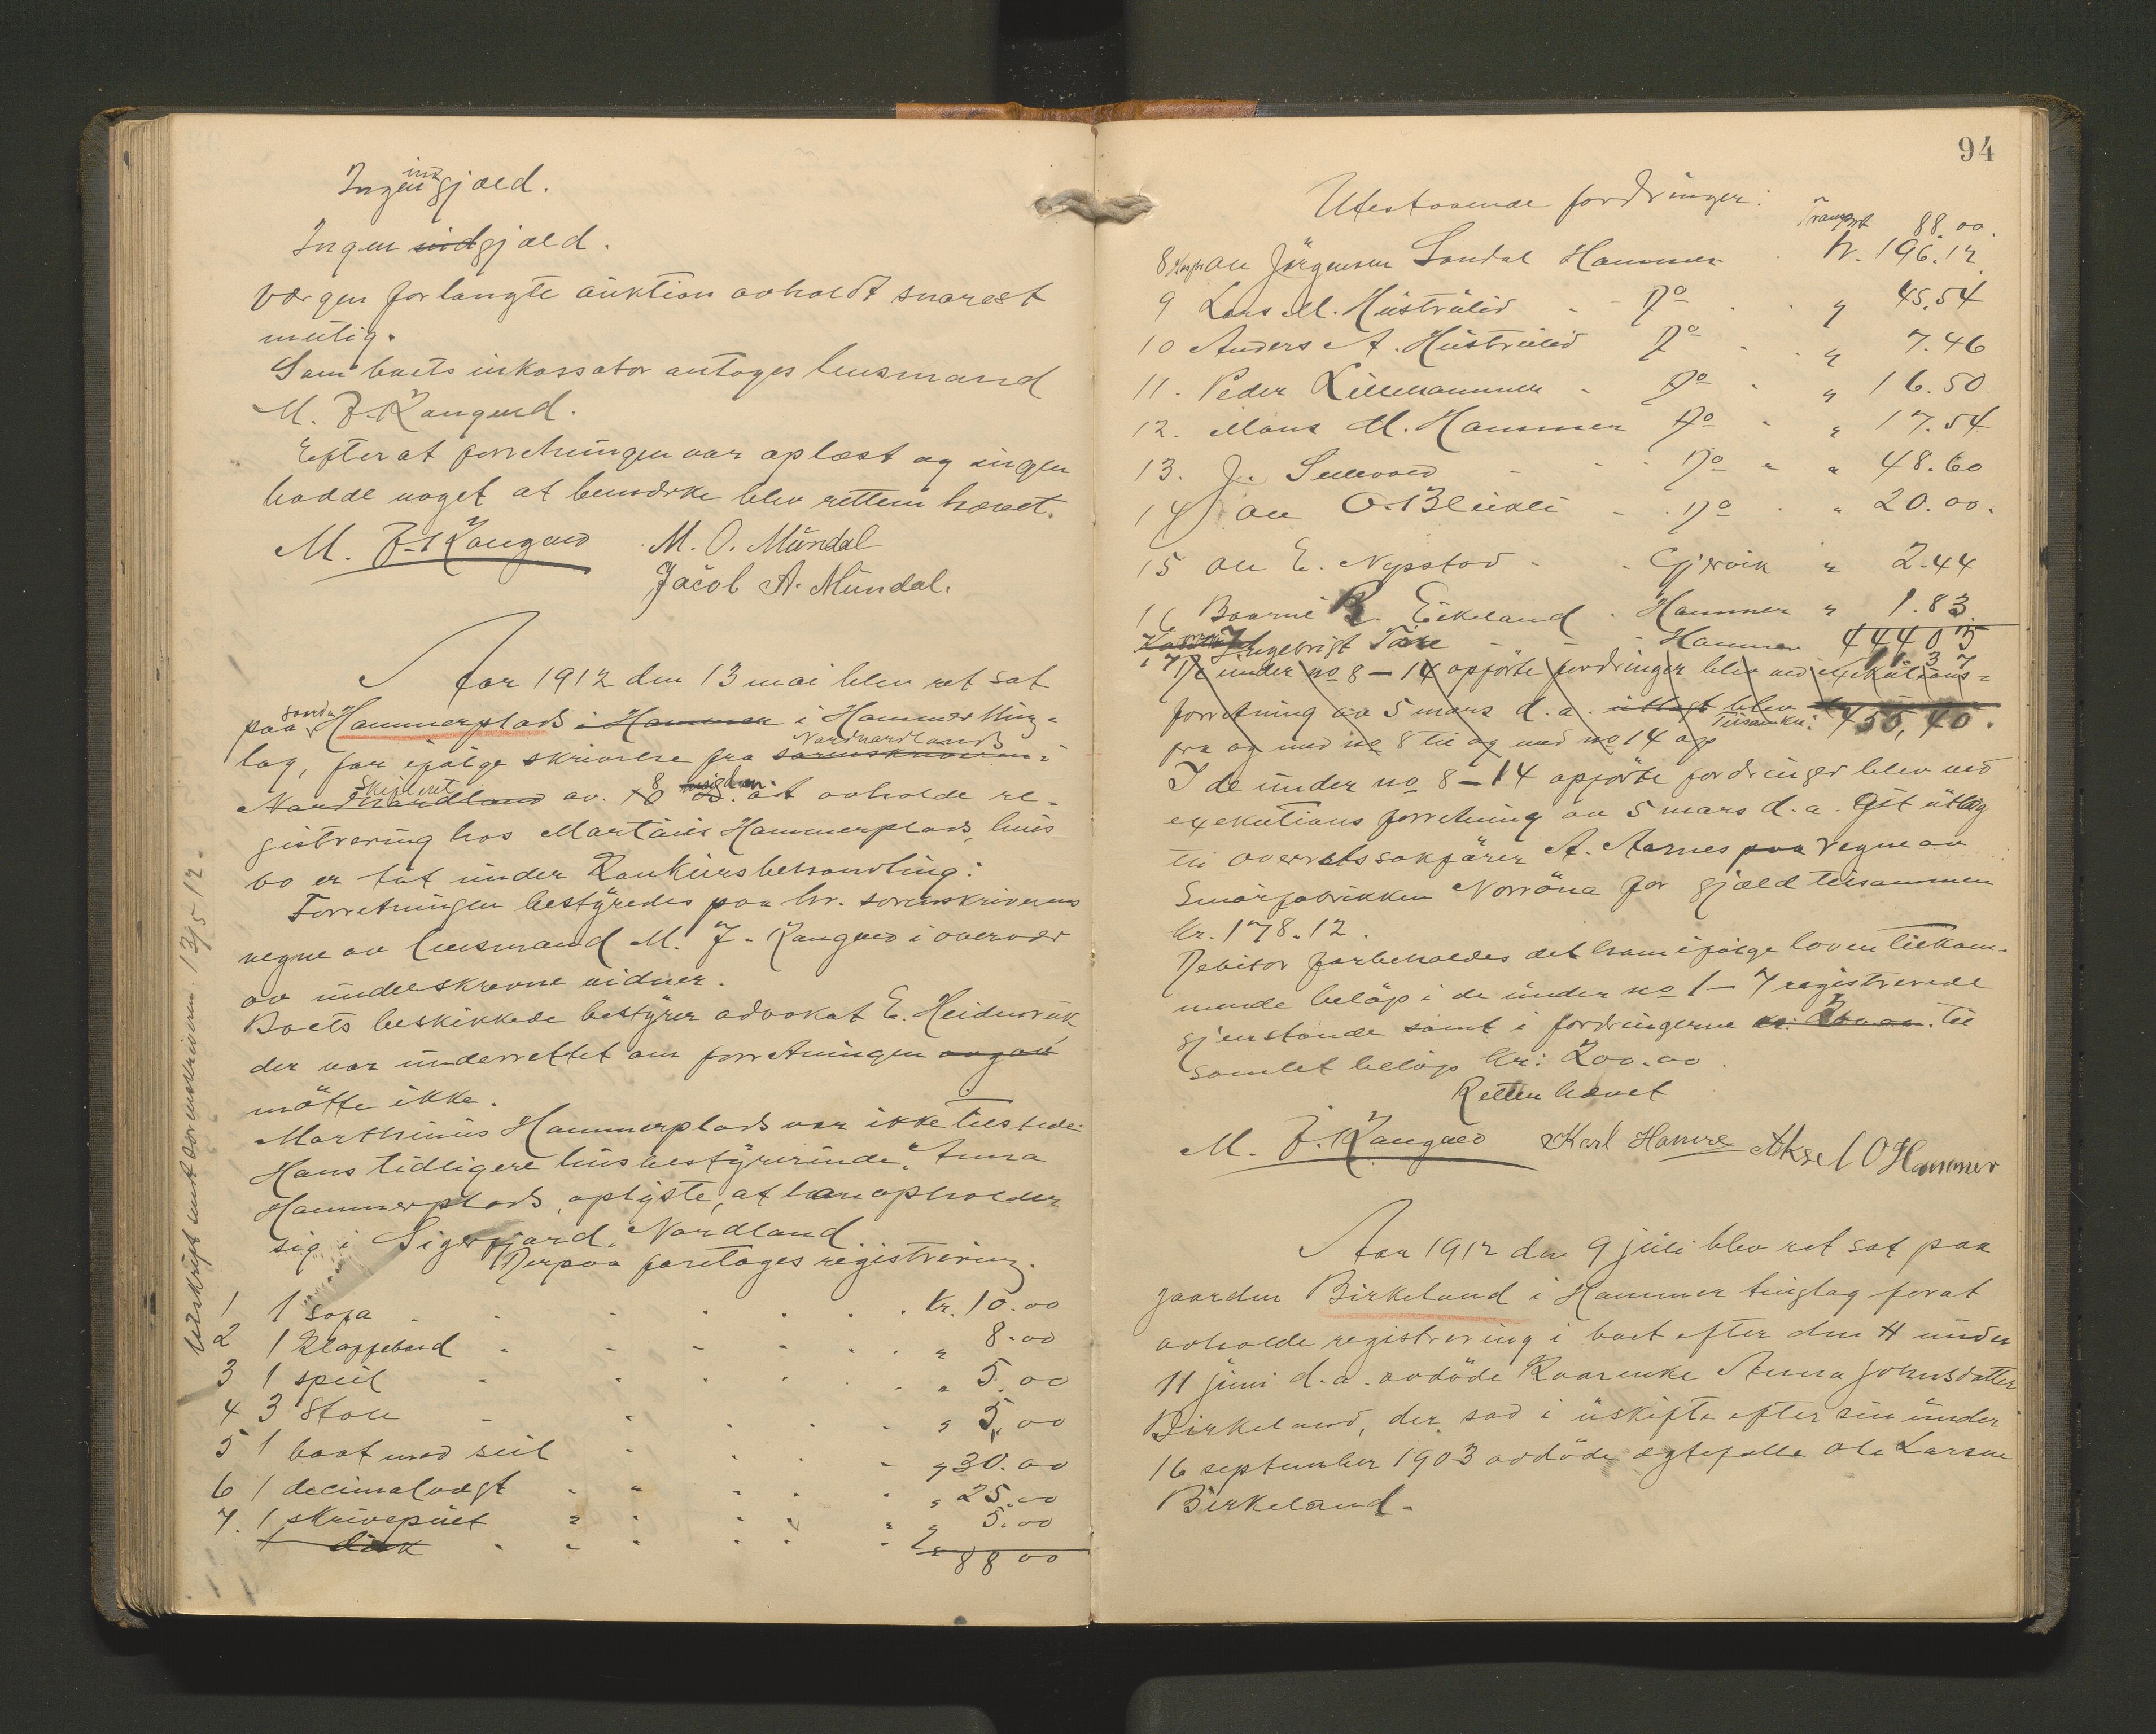 Ingen indgjæld.
Ingen indgjæld.
Værgen forlangte auktion avholdt snarest
mulig.
Som boets inkassator antoges lensmand
M. J. Kauguld.
Efterat forretningen var oplæst og ingen
hadde noget at bemærke blev retten hævet.
M. J. Kauguld M. O. Mündal
Jacob A. Mündal.
Aar 1912 den 13 mai blev ret sat
paa gaarden Hammerplads i Hammer i Hammer ting-
lag, for ifølge skrivelse fra sorenskriveren i Nordhordlands
Nordhordland skifteret av 8 ds. at avholde re-
gistrering hos Martinus Hammerplads, hvis
bo er tat under Konkursbehandling:
Forretningen bestyredes paa hr. sorenskriverens
vegne av lensmand M. J. Kauguld i overvær
av underskrevne vidner.
Boets beskikkede bestyrer advokat E. Heidenrük
der var underrettet om forretningen
møtte ikke.
Marthinus Hammerplads var ikke tilstede.
Hans tidligere husbestyrerinde, Anna
Hammerplads, oplyste, at han opholder
sig i Sigerfjord, Nordland.
Derpaa foretages registrering.
1 1 sofa Kr. 10.00
2 1 Klappebord " 8.00
3 1 speil " 5.00
4 3 Stole " 5,00
5 1 baat med seil " 30.00
6 1 decimalvægt " 25.00
7. 1 skrivepult " 5.00
1 disk
88 00
Utskrift sendt sorenskriveren 13/5 12.
94
Utestaaende fordringer:
Transport 88.00.
8 Hos Ole Jørgensen Sondal Hammer Kr. 196.12
9 Lars M. Hüstvülid Do " 45.54
10 Anders A. Hüstvülid Do " 7.46
11. Peder Lillehammer Do " 16.50
12. Mons M. Hammer Do " 17.54
13. J. Sellevold Do " 48.60
14 Ole O. Blindli Do " 20.00.
15 Ole E. Nepstad Gjervik " 2.44
16 Baarni R. Eikeland Hammer " 1.83
444 03
17 Ingebrigt Toke Hammer 11 37
De under no 8 - 14 opførte fordringer blev ved exekutions-
forretning av 5 mars d.a. utlagt blev Tilsammen: 455,40.
fra og med no 8 til og med no 14 op
I de under no 8-14 opførte fordringer blev ved
exekutions forretning av 5 mars d.a. git utlæg
til overretssakfører A. Aarnes paa vegne av
Smørfabrikken Norrøna for gjæld tilsammen
kr. 178.12.
Debitor forbeholdes det ham ifølge loven tilkom-
mende beløp i de under no 1-7 registrerede
gjenstande samt i fordringerne til
samlet beløp kr: 200.00.
Retten hævet
M. J. Kauguld Karl Hamre Aksel O Hammer
Aar 1912 den 9 juli blev ret sat paa
gaarden Birkeland i Hammer tinglag forat
avholde registrering i boet efter den under
11 juni d.a. avdøde Kaarenke Anna Johnsdatter
Birkeland, der sad i uskifte efter sin under
16 september 1903 avdøde ægtefælle Ole Larsen
Birkeland.